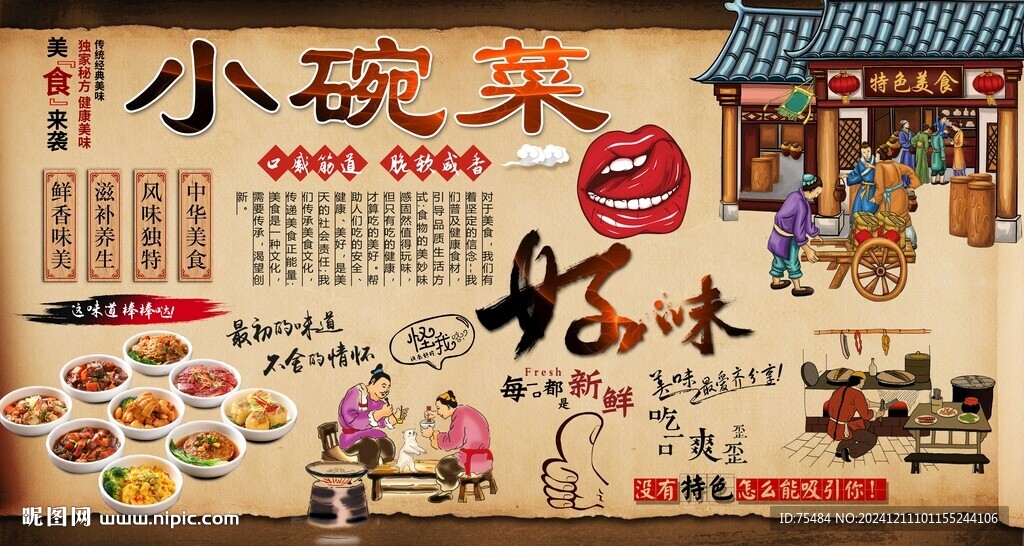 传统经典美味
独家秘方 健康美味
美『食』来袭
小碗菜
特色美食
口感筋道 脆软咸香
鲜香味美
滋补养生
风味独特
中华美食
对于美食，我们有
着坚定的信念：我
们普及健康食材，
引导品质生活方
式；食物的美妙味
感固然值得玩味，
但只有吃的健康，
才算吃的美好。帮
助人们吃的安全、
健康、美好，是美
天的社会责任；我
们传承美食文化，
传递美食正能量，
美食是一种文化，
需要传承，渴望创
新。
好味
这味道棒棒哒!
最初的味道
不舍的情怀
怪我
Fresh
每一口都是新鲜
美味最爱齐分享!
吃一口爽歪歪
没有特色怎么能吸引你!
昵图网 www.nipic.com
ID:75484 NO:20241211101155244106